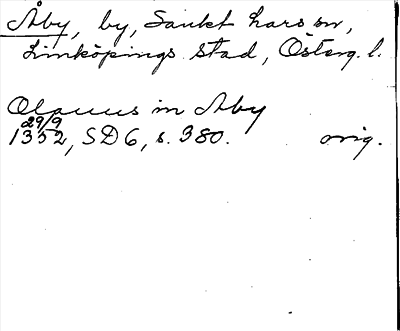 Åby, by, Sankt Lars sn,
Linköpings stad, Österg. l.
Olauus in Aby
29/9
1352, SD6, s. 380. orig.